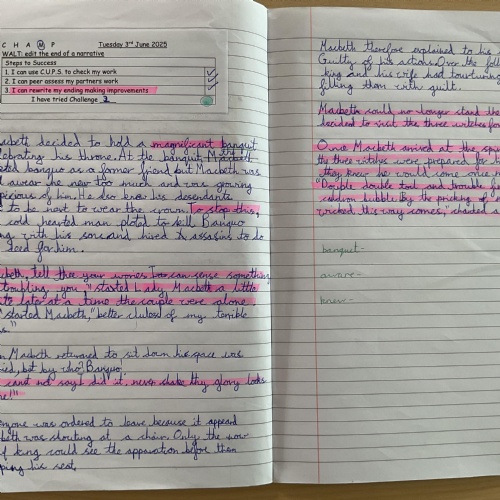 C H A M P
Tuesday 3rd June 2025
WALT: edit the end of a narrative
Steps to Success
1. I can use C.U.P.S. to check my work
2. I can peer assess my partners work
3. I can rewrite my ending making improvements
I have tried Challenge 2
acbeth decided to hold a magnificent banquit
lebrating his throne. At the banquit, Macbeth
ted banquo as a former friend but Macbeth was
awear he new too much and was growing
spicious of him. He also knew his desendants
to be next to wear the crown. To stop this,
cold hearted man ploted to kill Banquo
ng with his son and hired 2 assasins to do
deed for him.
cbeth, tell the your worries I can sense something
trembling you" started Lady Macbeth a little
late later at a time the couple were alone.
"started Macbeth, "better of my terrible
s."
n Macbeth returned to sit down his space was
ied, but by who? Banquo.
cant not say I did it. never shake thy glory looks
me!"
eryone was ordered to leave because it appeard
beth was shouting at a chair. Only the now
king could see the apparation before then
ping his seat.
Macbeth therefore explained to his
Guilty of his actions. Over the foll
king and his wife had
filling them with guilt.
Macbeth could no longer stand the
decided to visit the three witches
Once Macbeth arrived at the
the three witches were prepared for h
they knew he would come once
"Double double toil and trouble
caldron bubble. By the pricking of
wicked this way comes,
banquet-
aware-
knew-